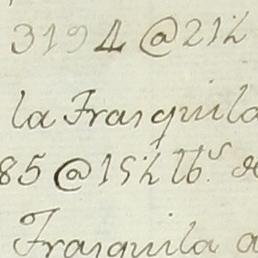 3194 @ 21½
la Frasquila
85 @ 15½ lbs. de
Frasquila a